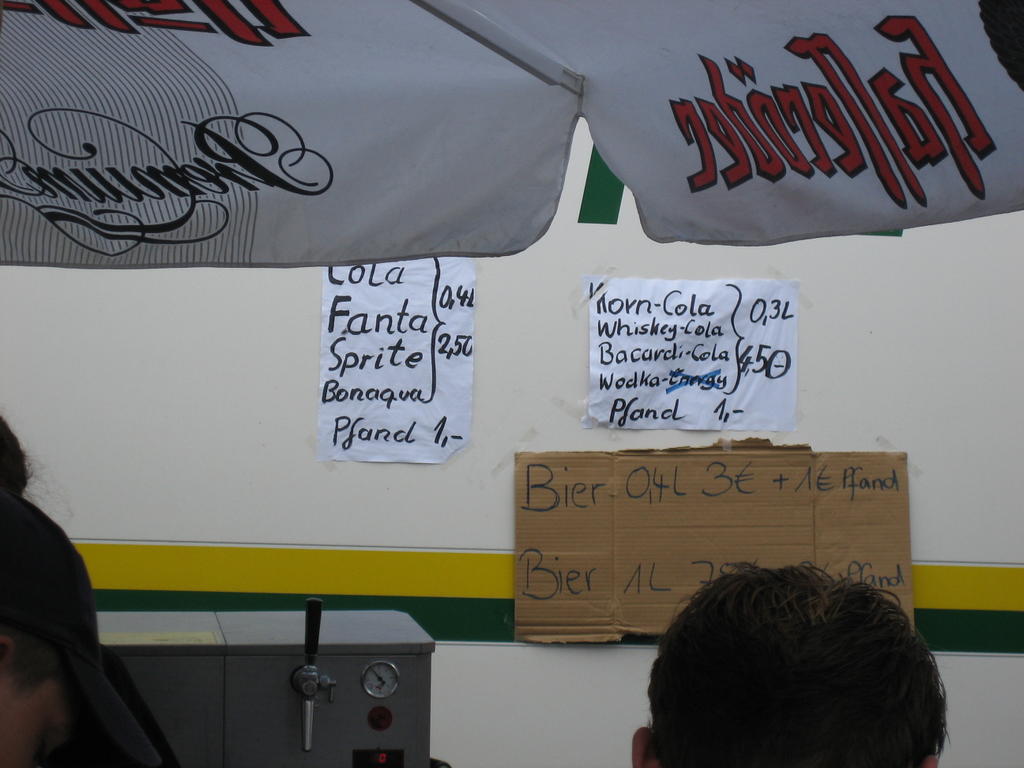 Hasseröder
Premium
Cola
Fanta 0,4L
Sprite 2,50
Bonaqua
Pfand 1,-
Korn-Cola 0,3L
Whiskey-Cola
Bacardi-Cola 4,50
Wodka-Energy
Pfand 1,-
Bier 0,4L 3€ + 1€ Pfand
Bier 1L Pfand
0